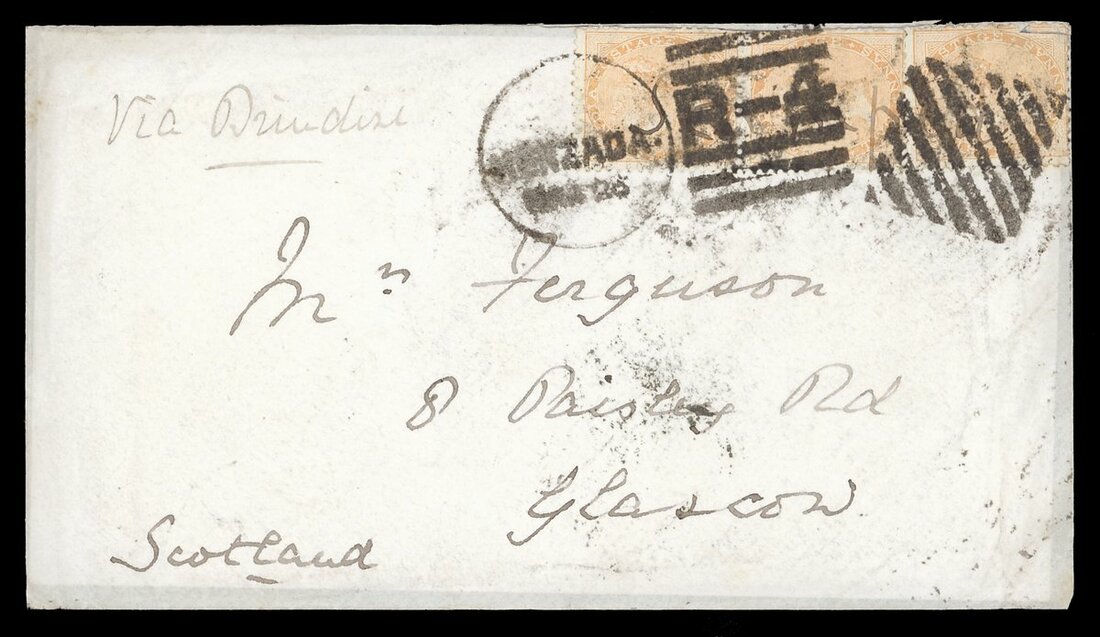 Via Brindisi
R-4
Mrs Ferguson
8 Paisley Rd
Glascow
Scotland